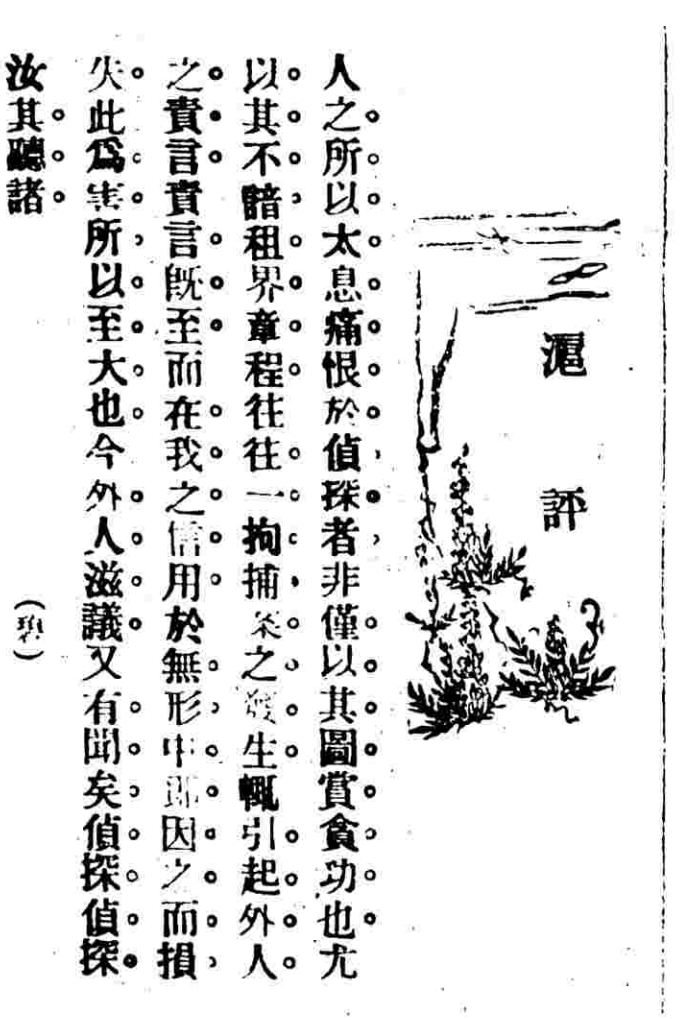 滬評
人之所以太息痛恨於偵探者非僅以其圖賞貪功也尤
以其不諳租界章程往往一拘捕案之發生輒引起外人
之責言責言旣至而在我之信用於無形中卽因之而損
失此爲害所以至大也今外人滋議又有聞矣偵探偵探
汝其聽諸